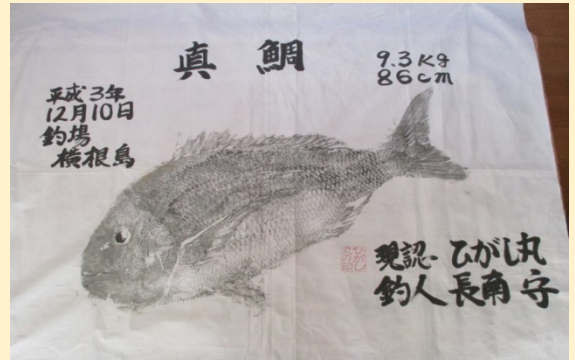 真鯛
9.3kg
86cm
平成3年
12月10日
釣場
横根島
現認 ひがし丸
釣人 長南 守